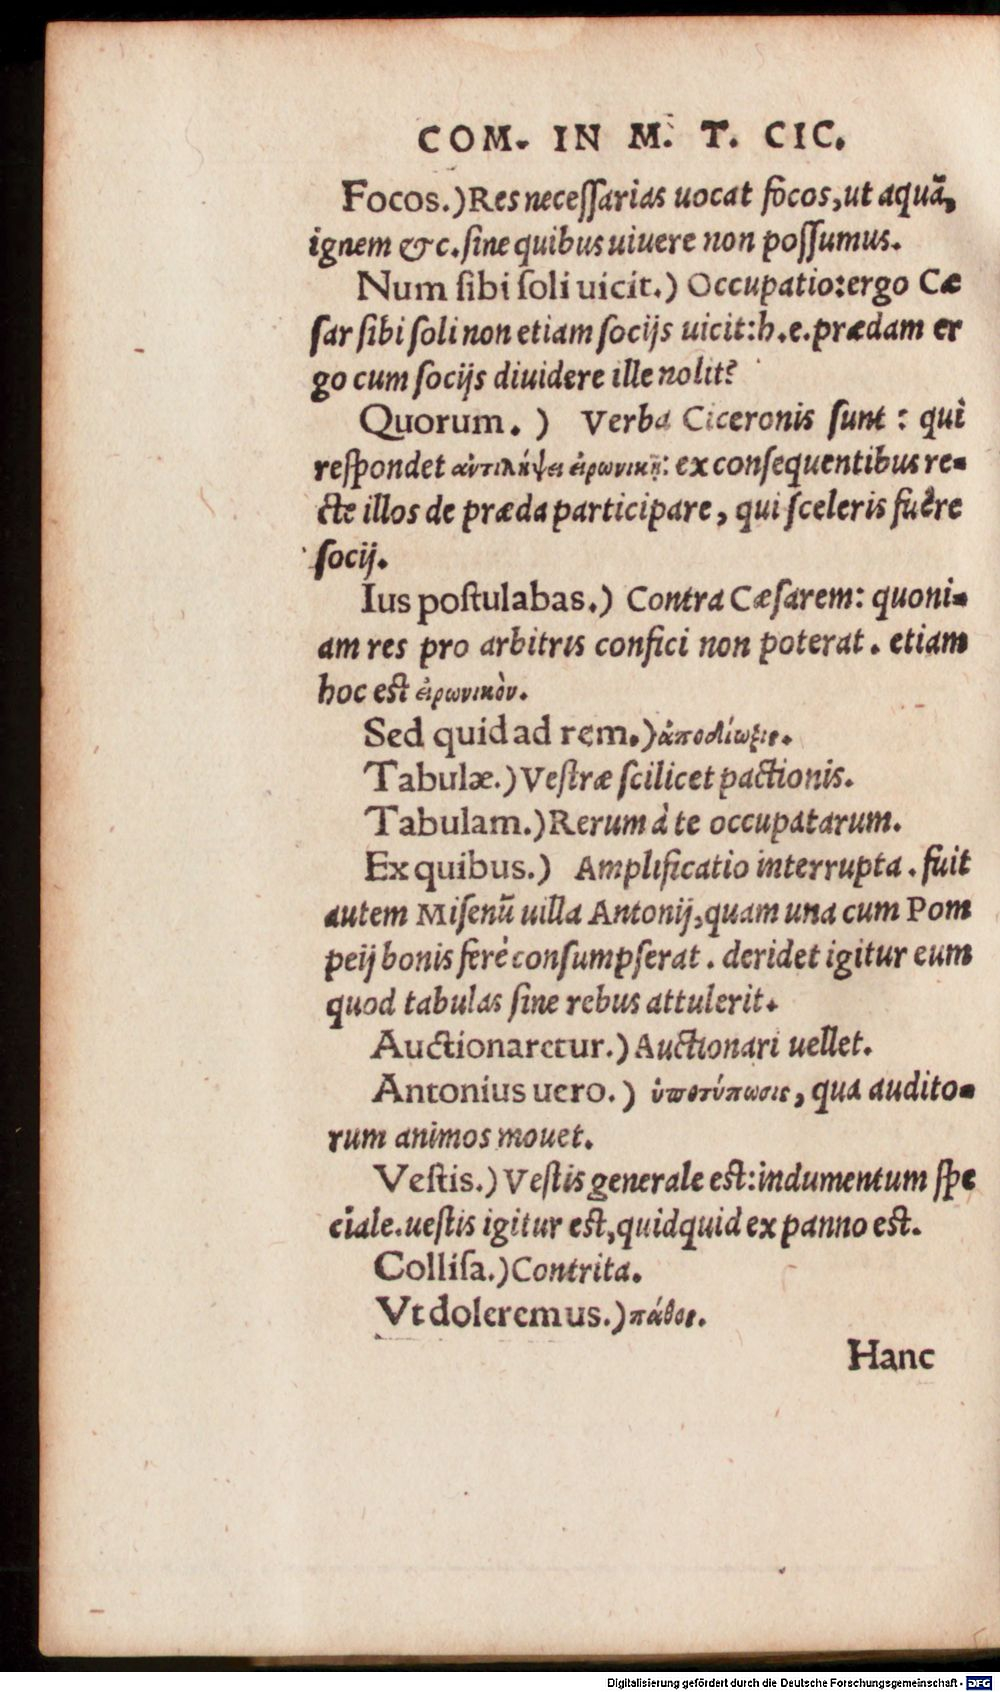 COM. IN M. T. CIC.
Focos.) Res necessarias uocat focos, ut aquã,
ignem &c. sine quibus uiuere non possumus.
Num sibi soli uicit.) Occupatio: ergo Cæ
sar sibi soli non etiam socijs uicit: h. e. prædam er
go cum socijs diuidere ille nolit?
Quorum. ) Verba Ciceronis sunt : qui
respondet ἀντιλήψει εἰρωνικῇ: ex consequentibus re-
cte illos de præda participare, qui sceleris fuêre
socij.
Ius postulabas.) Contra Cæsarem: quoni-
am res pro arbitris confici non poterat. etiam
hoc est εἰρωνικὸν.
Sed quid ad rem.) ἀποδίωξις.
Tabulæ.) Vestræ scilicet pactionis.
Tabulam.) Rerum à te occupatarum.
Ex quibus.) Amplificatio interrupta. fuit
autem Misenũ uilla Antonij, quam una cum Pom
peij bonis ferè consumpserat. deridet igitur eum
quod tabulas sine rebus attulerit.
Auctionaretur.) Auctionari uellet.
Antonius uero.) ὑποτύπωσις, qua audito-
rum animos mouet.
Vestis.) Vestis generale est: indumentum spe
ciale. uestis igitur est, quidquid ex panno est.
Collisa.) Contrita.
Vt doleremus.) πάθος.
Hanc
Digitalisierung gefördert durch die Deutsche Forschungsgemeinschaft - DFG